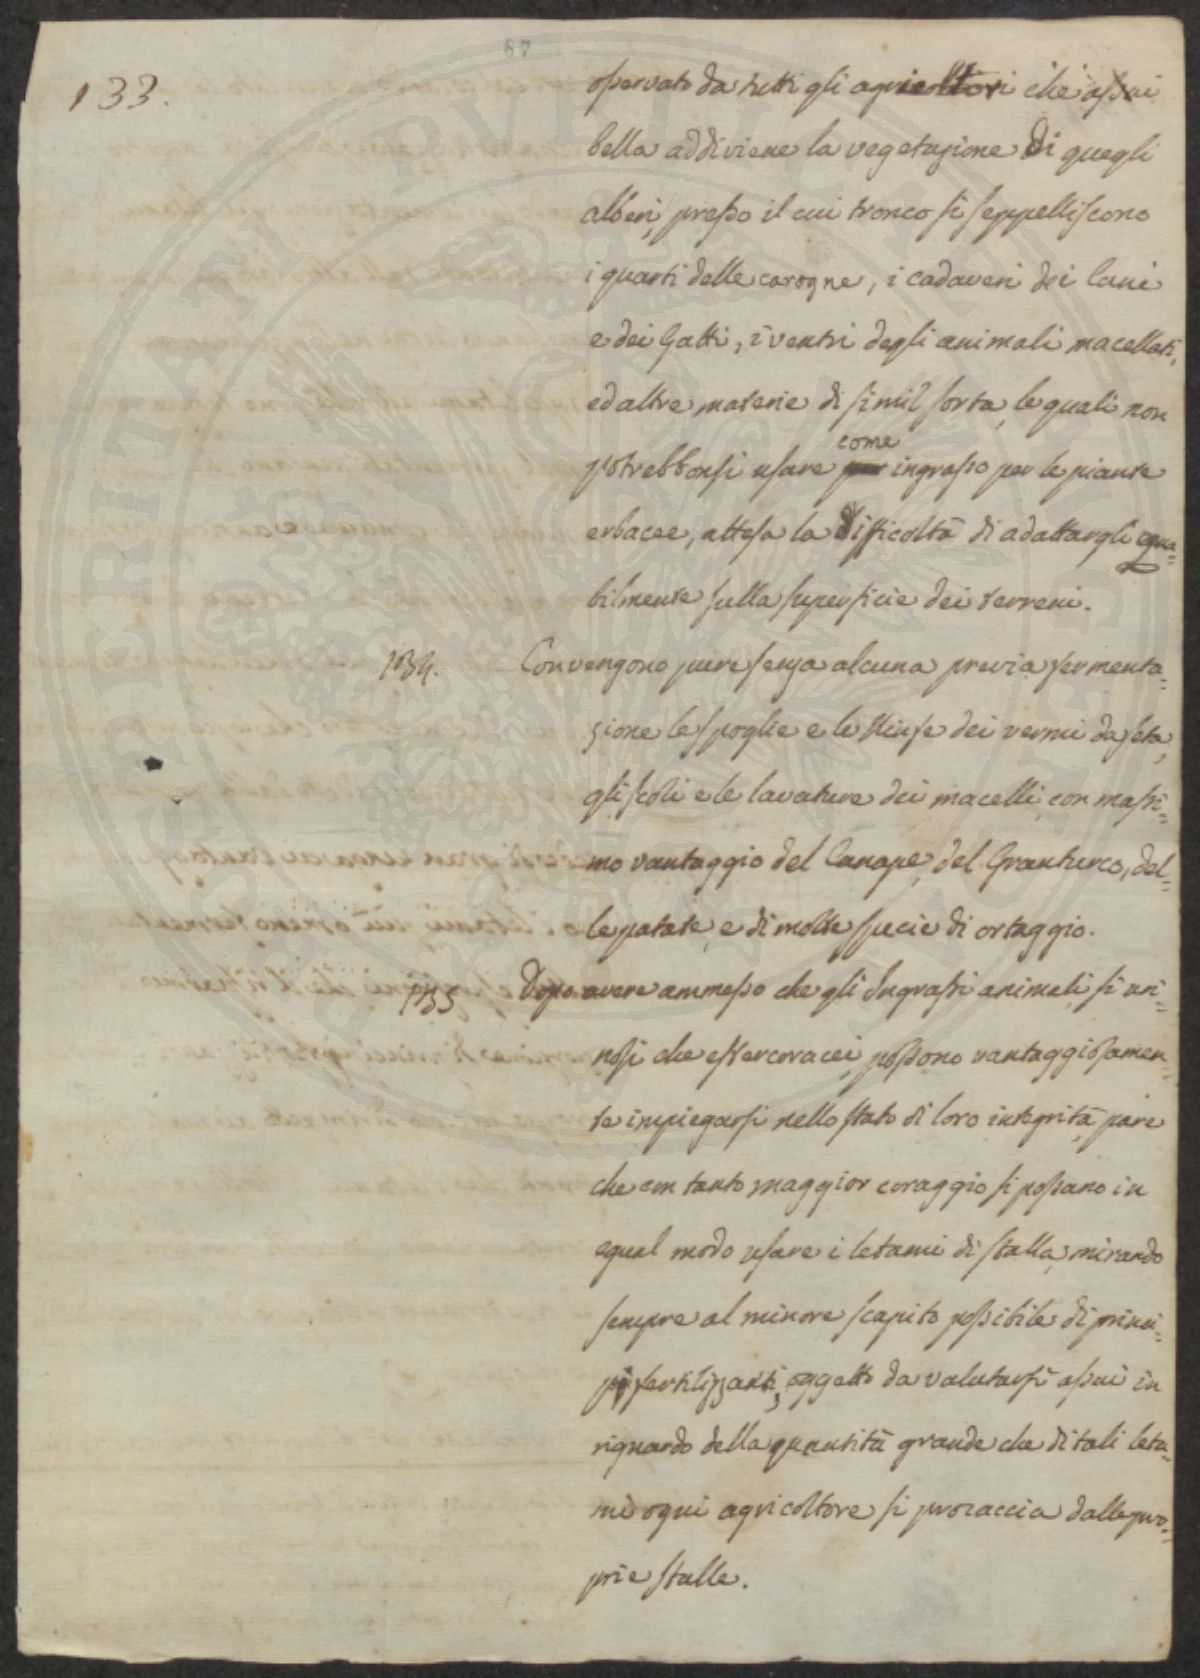 87
133.
osservato da tutti gli agricoltori che assai
bella addiviene la vegetazione di quegli
alberi, presso il cui tronco si seppelliscono
i quarti delle carogne, i cadaveri dei Cani
e dei Gatti, i ventri degli animali macellati,
ed altre materie di simil sorta, le quali non
come
potrebbonsi usare per ingrasso per le piante
erbacee, attesa la difficoltà di adattargli equa=
bilmente sulla superficie dei terreni.
134. Convengono pure senza alcuna previa fermenta=
zione le spoglie e le stiuse dei vermi da seta,
gli scoli e le lavature dei macelli con massi=
mo vantaggio del Canape, del Granturco, del=
le patate, e di molte specie di ortaggio.
135 Dopo avere ammesso che gli Ingrassi animali, si uri=
nosi che estercoracei, possono vantaggiosamen=
te impiegarsi nello stato di loro integrità, pare
che con tanto maggior coraggio si possano in
egual modo usare i letami di stalla, mirando
sempre al minore scapito possibile di princi=
pi fertilizzanti, oggetto da valutarsi assai in
riguardo della quantità grande che di tali leta=
mi ogni agricoltore si procaccia dalle pro=
prie stalle.